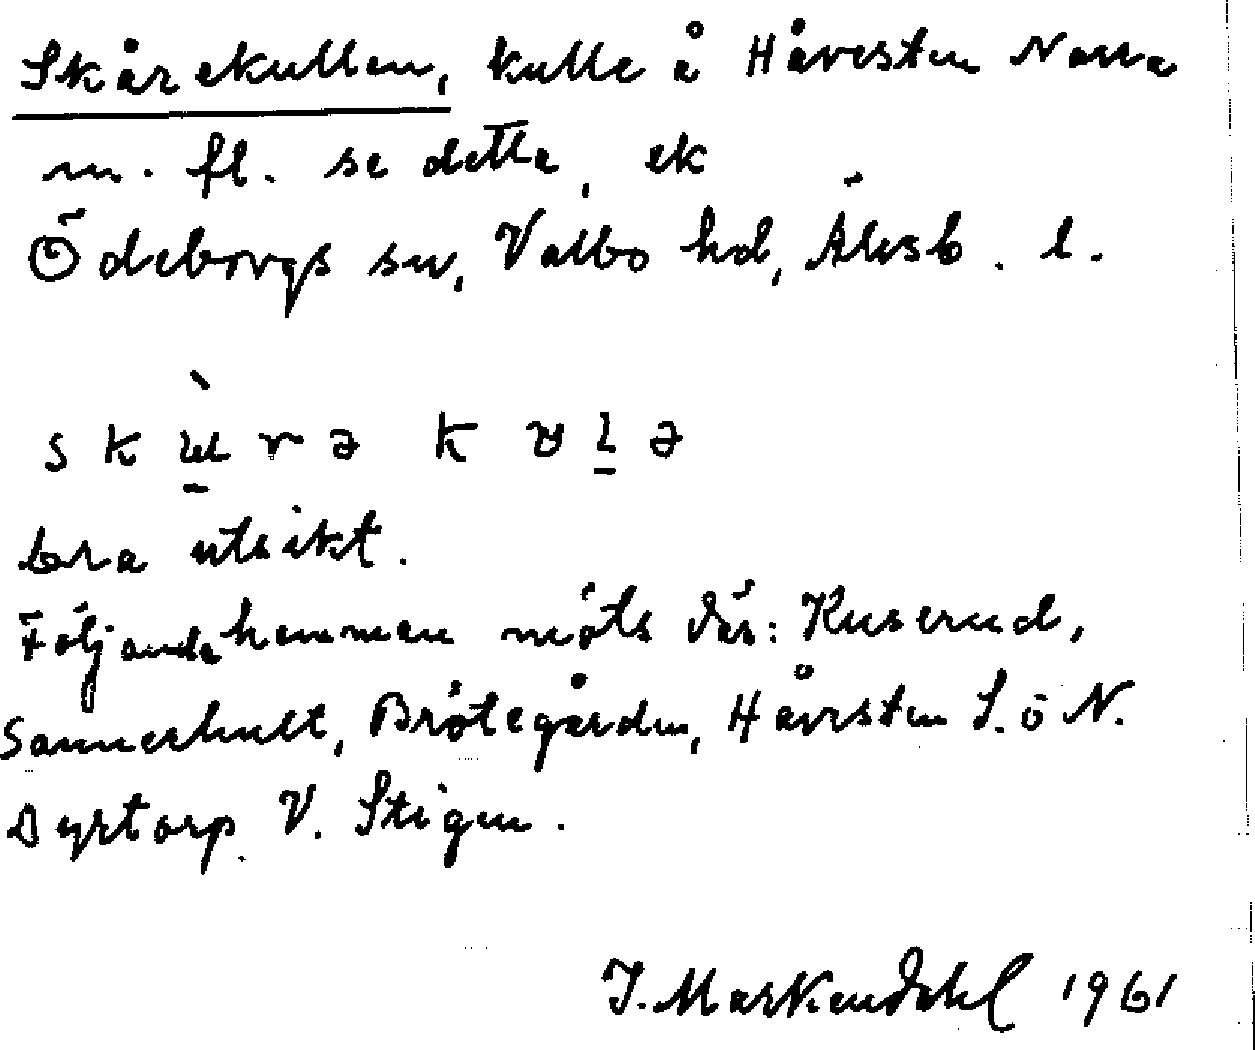 Skårekullen, kulle å Håvesten Norra
m. fl. se detta, ek
Ödeborgs sn, Valbo hd, Älvsb. l.
bra utsikt.
Följande hemman möts där: Kuserud,
Sannerhult, Brötegården, Håvesten S. o N.
Dyrtorp V. Stigen.
J. Markendahl 1961